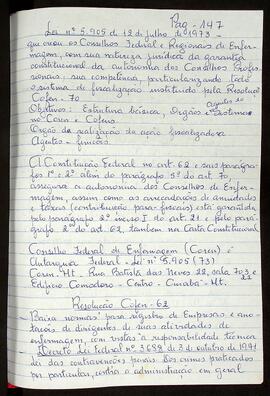 Pag - 147
Lei nº 5.905 de 12 de julho de 1973 -
que criou os Conselhos Federal e Regionais de Enfer-
magem, com sua natureza jurídica da garantia
constitucional da autonomia dos Conselhos Profis-
sionais; sua competência, particularizando todo
o sistema de fiscalização instituído pela Resolução
Cofen - 70
Objetivos: Estrutura básica, Órgãos e Sistema
no Coren e Cofens.
Órgão de realização da ação fiscalizadora
Agentes - fiscais
A Constituição Federal no art. 62 e seus parágra-
fos 1º e 2º além do parágrafo 5º do art. 70,
assegura a autonomia dos Conselhos de Enfer-
magem, assim como as arrecadações de anuidades
e taxas (contribuição para-fiscais) esta garantida
pelo parágrafo 2º inciso I do art. 21 e pelo pará-
grafo 2º do art. 62, também na Carta Constitucional
Conselho Federal de Enfermagem (Coren) é
Autarquia Federal - Lei nº 5.905 (73)
Coren. Mt. Rua Batista das Neves 22, sala 703 e
Edifício Comodoro - Centro - Cuiabá - Mt.
Resolução Cofen - 62
Baixa normas para registro de Empresas e ano-
tações de dirigentes de suas atividades de
enfermagem, com vistas à responsabilidade técnica
Decreto Lei Federal nº 3689 de 3 de outubro de 1941
Lei das contravenções penais. Dos crimes praticados
por particular, contra a administração em geral